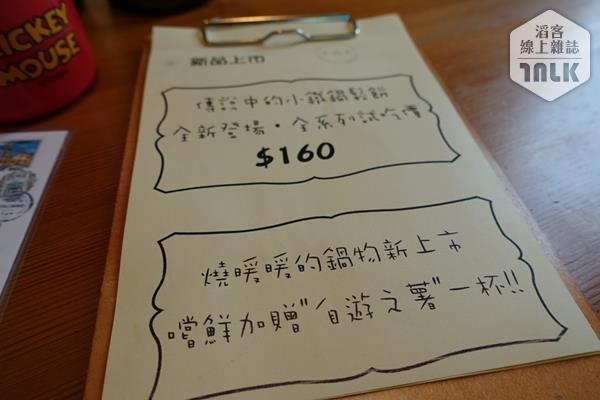 MICKEY
MOUSE
滔客
線上雜誌
TALK
新品上市
傳說中的小鐵鍋鬆餅
全新登場。全系列試吃價
$160
燒暖暖的鍋物新上市
嚐鮮加贈"自遊之薯"一杯!!